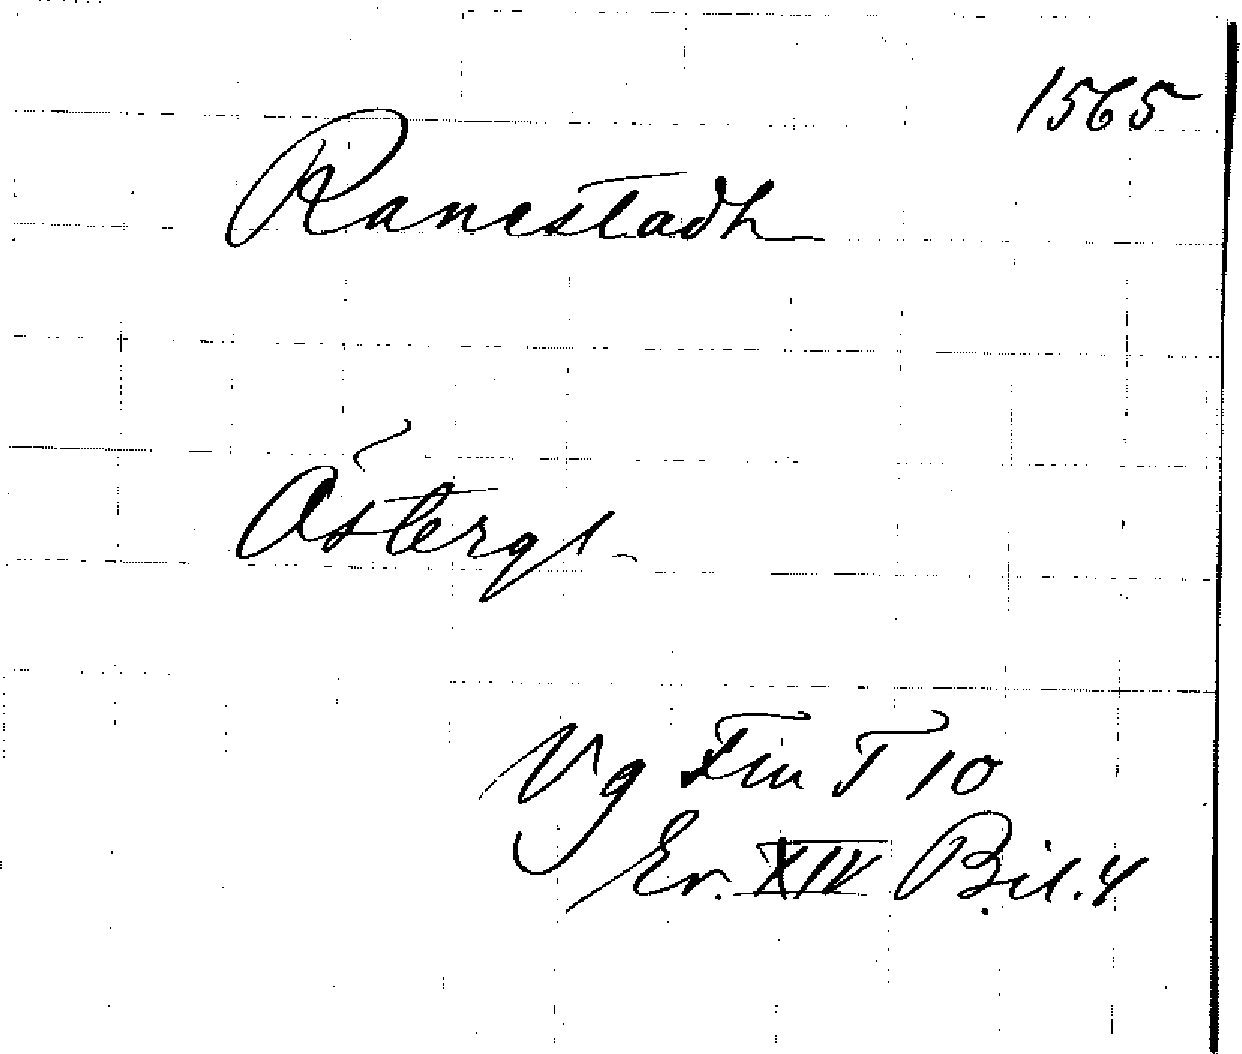 1565
Ranestadh
Östergl.
Vg Fm T 10
Er. XIV Bil. 4